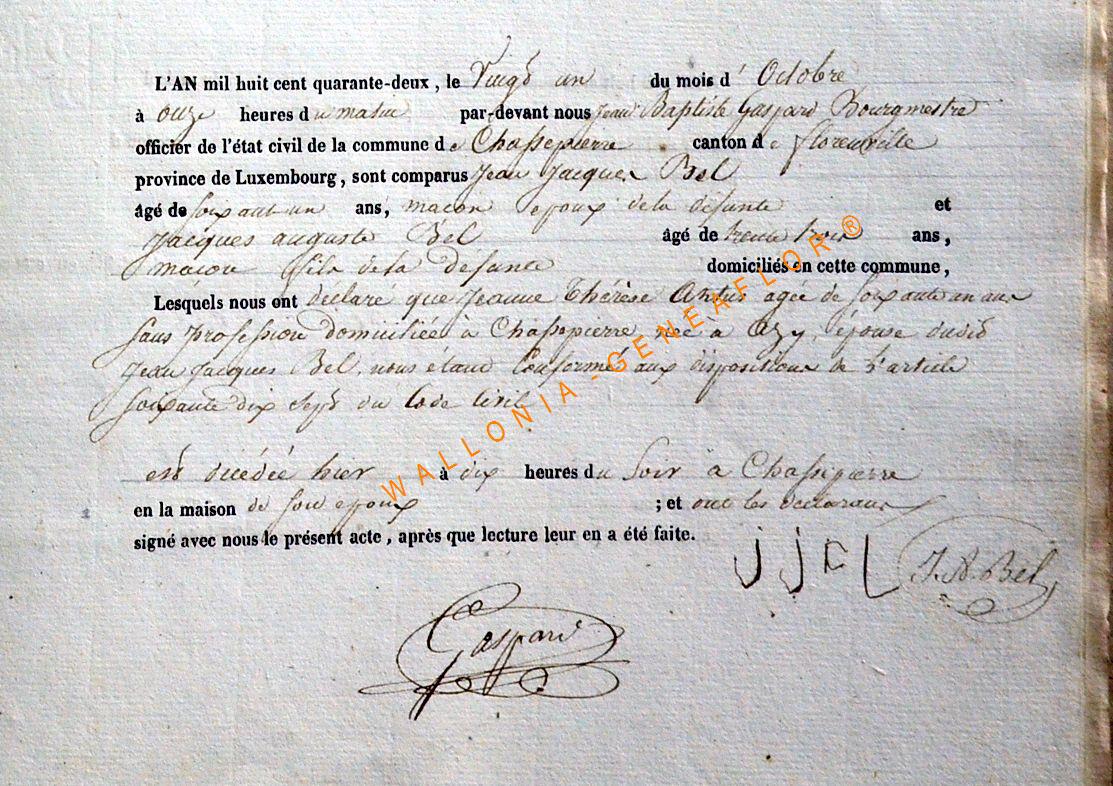 L'AN mil huit cent quarante-deux, le Vingt un du mois d' Octobre
à onze heures du matin par-devant nous jean Baptiste Gaspard Bourgmestre
officier de l'état civil de la commune de Chassepierre canton de florenville
province de Luxembourg, sont comparus Jean Jacques Bel
âgé de soixant un ans, macon epoux de la défunte et
Jacques auguste Bel âgé de trente trois ans,
macon fils de la defunte domiciliés en cette commune,
Lesquels nous ont declaré que Jeanne Thérèse agée de soixante un ans
sans profession domiciliée à Chassepierre, née à Azy, épouse dudit
Jean Jacques Bel, nous étant Conformé aux dispositions de l'article
soixante dix sept du Code Civil
est décédée hier à dix heures du Soir à Chassepierre
en la maison de son epoux ; et ont les declarans
signé avec nous le présent acte, après que lecture leur en a été faite.
J. A. Bel
Gaspard
WALLONIA-GENEAFLOR ®